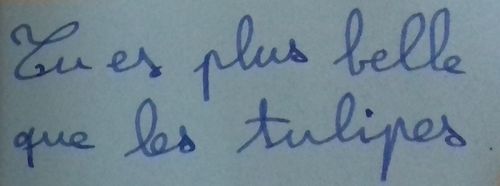 Tu es plus belle
que les tulipes